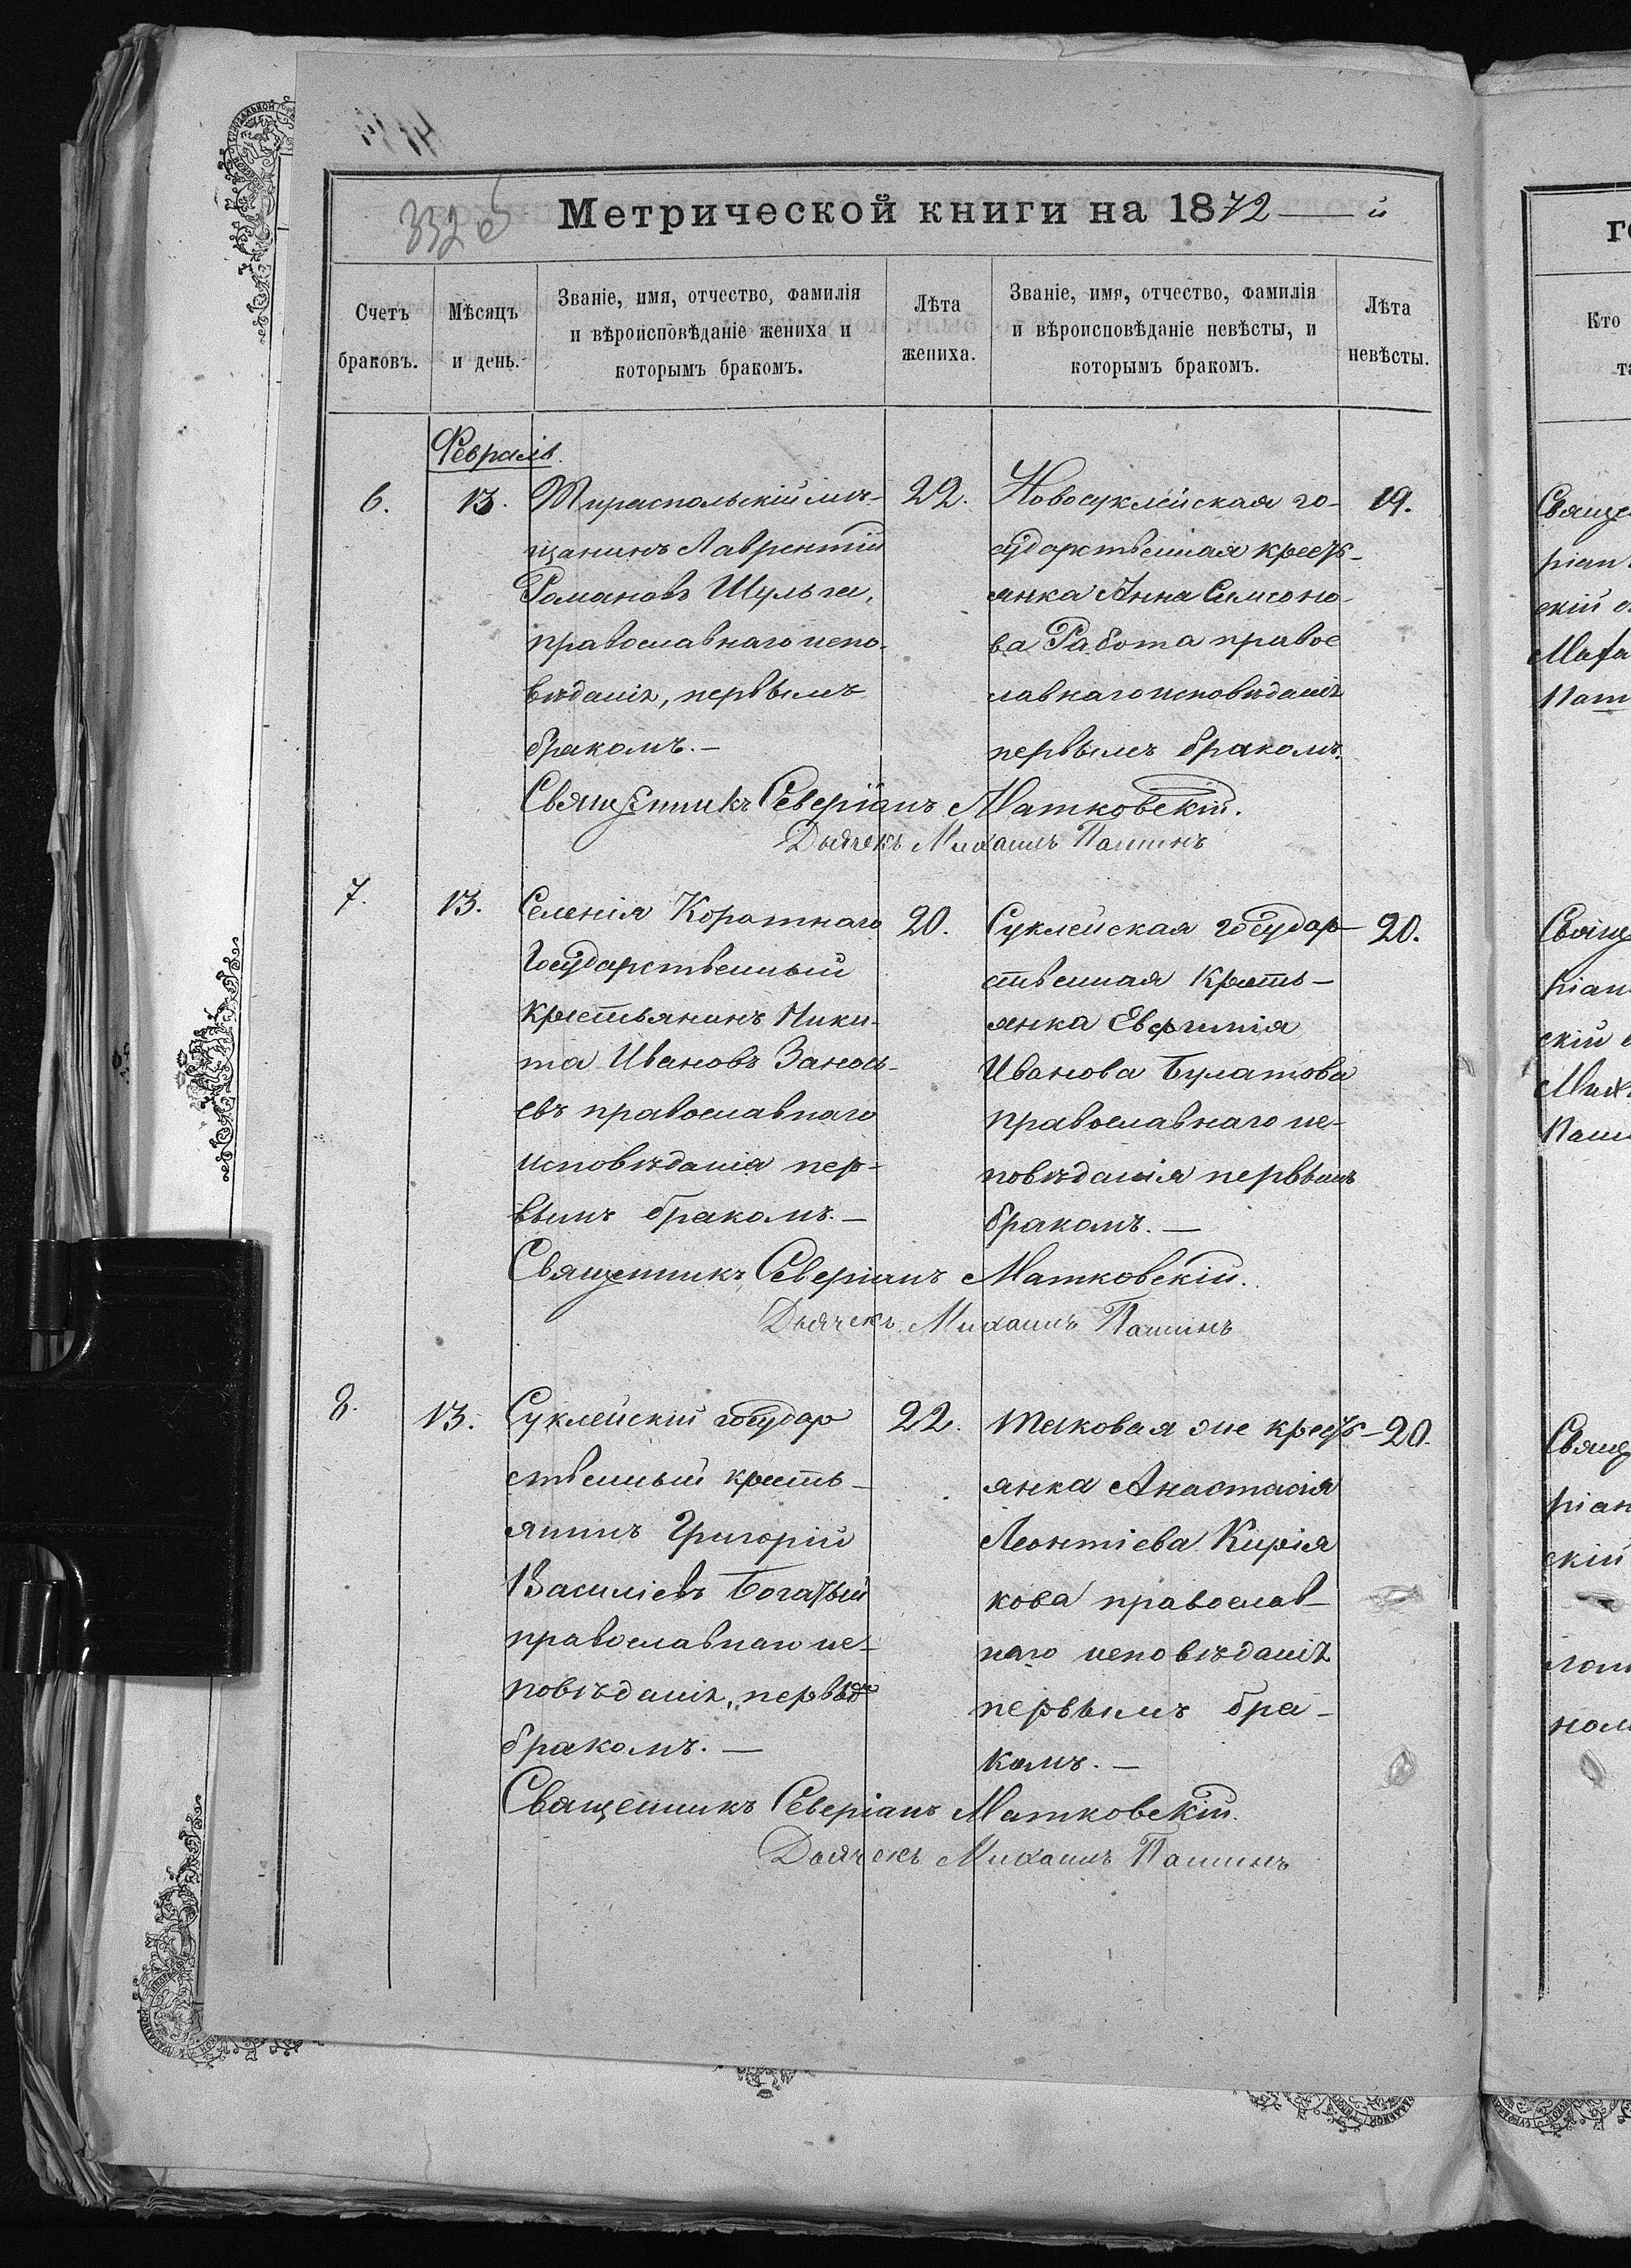 332 об
Метрической книги на 1872 — й
Счетъ браковъ.
Мѣсяцъ и день.
Званіе, имя, отчество, фамилія и вѣроисповѣданіе жениха и которымъ бракомъ.
Лѣта жениха.
Званіе, имя, отчество, фамилія и вѣроисповѣданіе невѣсты, и которымъ бракомъ.
Лѣта невѣсты.
Февраль.
6.
13.
Тираспольскій мѣ-
щанинъ Лаврентій
Романовъ Шульга,
православнаго испо-
вѣданія, первымъ
бракомъ. —
22.
Новосуклейская го-
сударственная кресть-
янка Анна Симоно-
ва Работа правос
лавнаго исповѣданія
первымъ бракомъ.
19.
Священникъ Северіанъ Матковскій.
Дьячекъ Михаилъ Пашинъ
7.
13.
Селенія Коротнаго
Государственный
крестьянинъ Ники-
та Ивановъ Занось-
евъ православнаго
исповѣданія пер-
вымъ бракомъ. —
20.
Суклейская государ-
ственная кресть-
янка Евфимія
Иванова Булатова
православнаго ис-
повѣданія первымъ
бракомъ. —
20.
Священникъ Северіанъ Матковскій.
Дьячекъ Михаилъ Пашинъ
8.
13.
Суклейский государ
ственный кресть-
янинъ Григорій
Василіевъ Богатый
православнаго ис-
повѣданія, первымъ
бракомъ. —
22.
Таковая же кресть-
янка Анастасія
Леонтіева Кирія
кова православ-
наго исповѣданія
первымъ бра-
комъ. —
20.
Священникъ Северіанъ Матковскій.
Дьячекъ Михаилъ Пашинъ
Кто